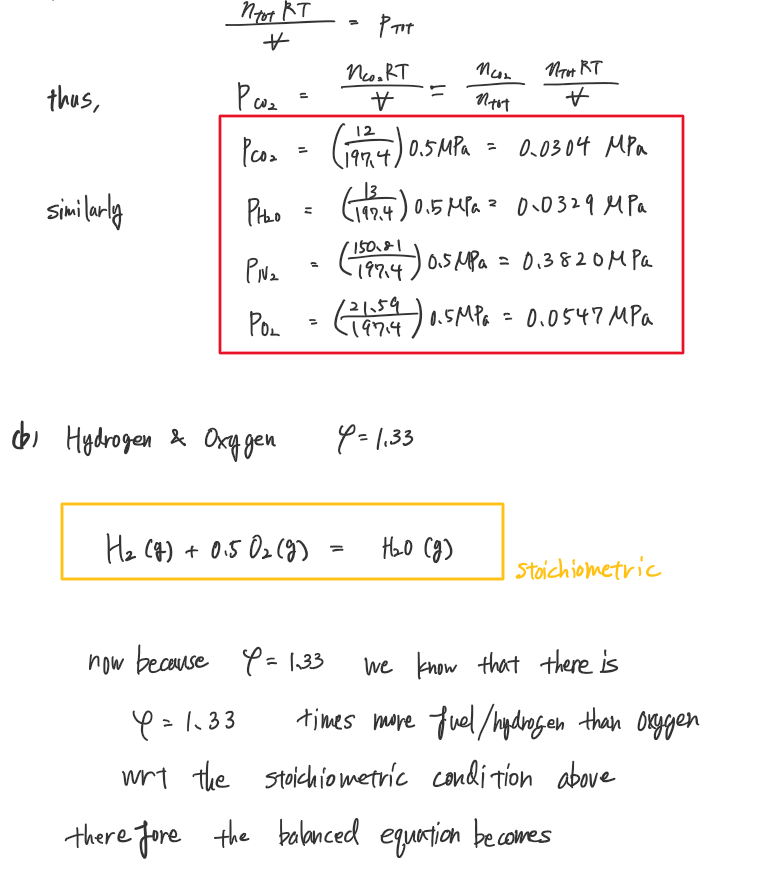 n_tot RT / V = P_TOT
thus, P_CO2 = n_CO2 RT / V = n_CO2 / n_tot n_TOT RT / V
P_CO2 = (12/197.4) 0.5MPa = 0.0304 MPa
similarly P_H2O = (13/197.4) 0.5 MPa = 0.0329 MPa
P_N2 = (150.81/197.4) 0.5MPa = 0.3820 MPa
P_O2 = (21.59/197.4) 0.5MPa = 0.0547 MPa
(b) Hydrogen & Oxygen φ = 1.33
H2 (g) + 0.5 O2 (g) = H2O (g)
stoichiometric
now because φ = 1.33 we know that there is
φ = 1.33 times more fuel/hydrogen than oxygen
wrt the stoichiometric condition above
therefore the balanced equation becomes